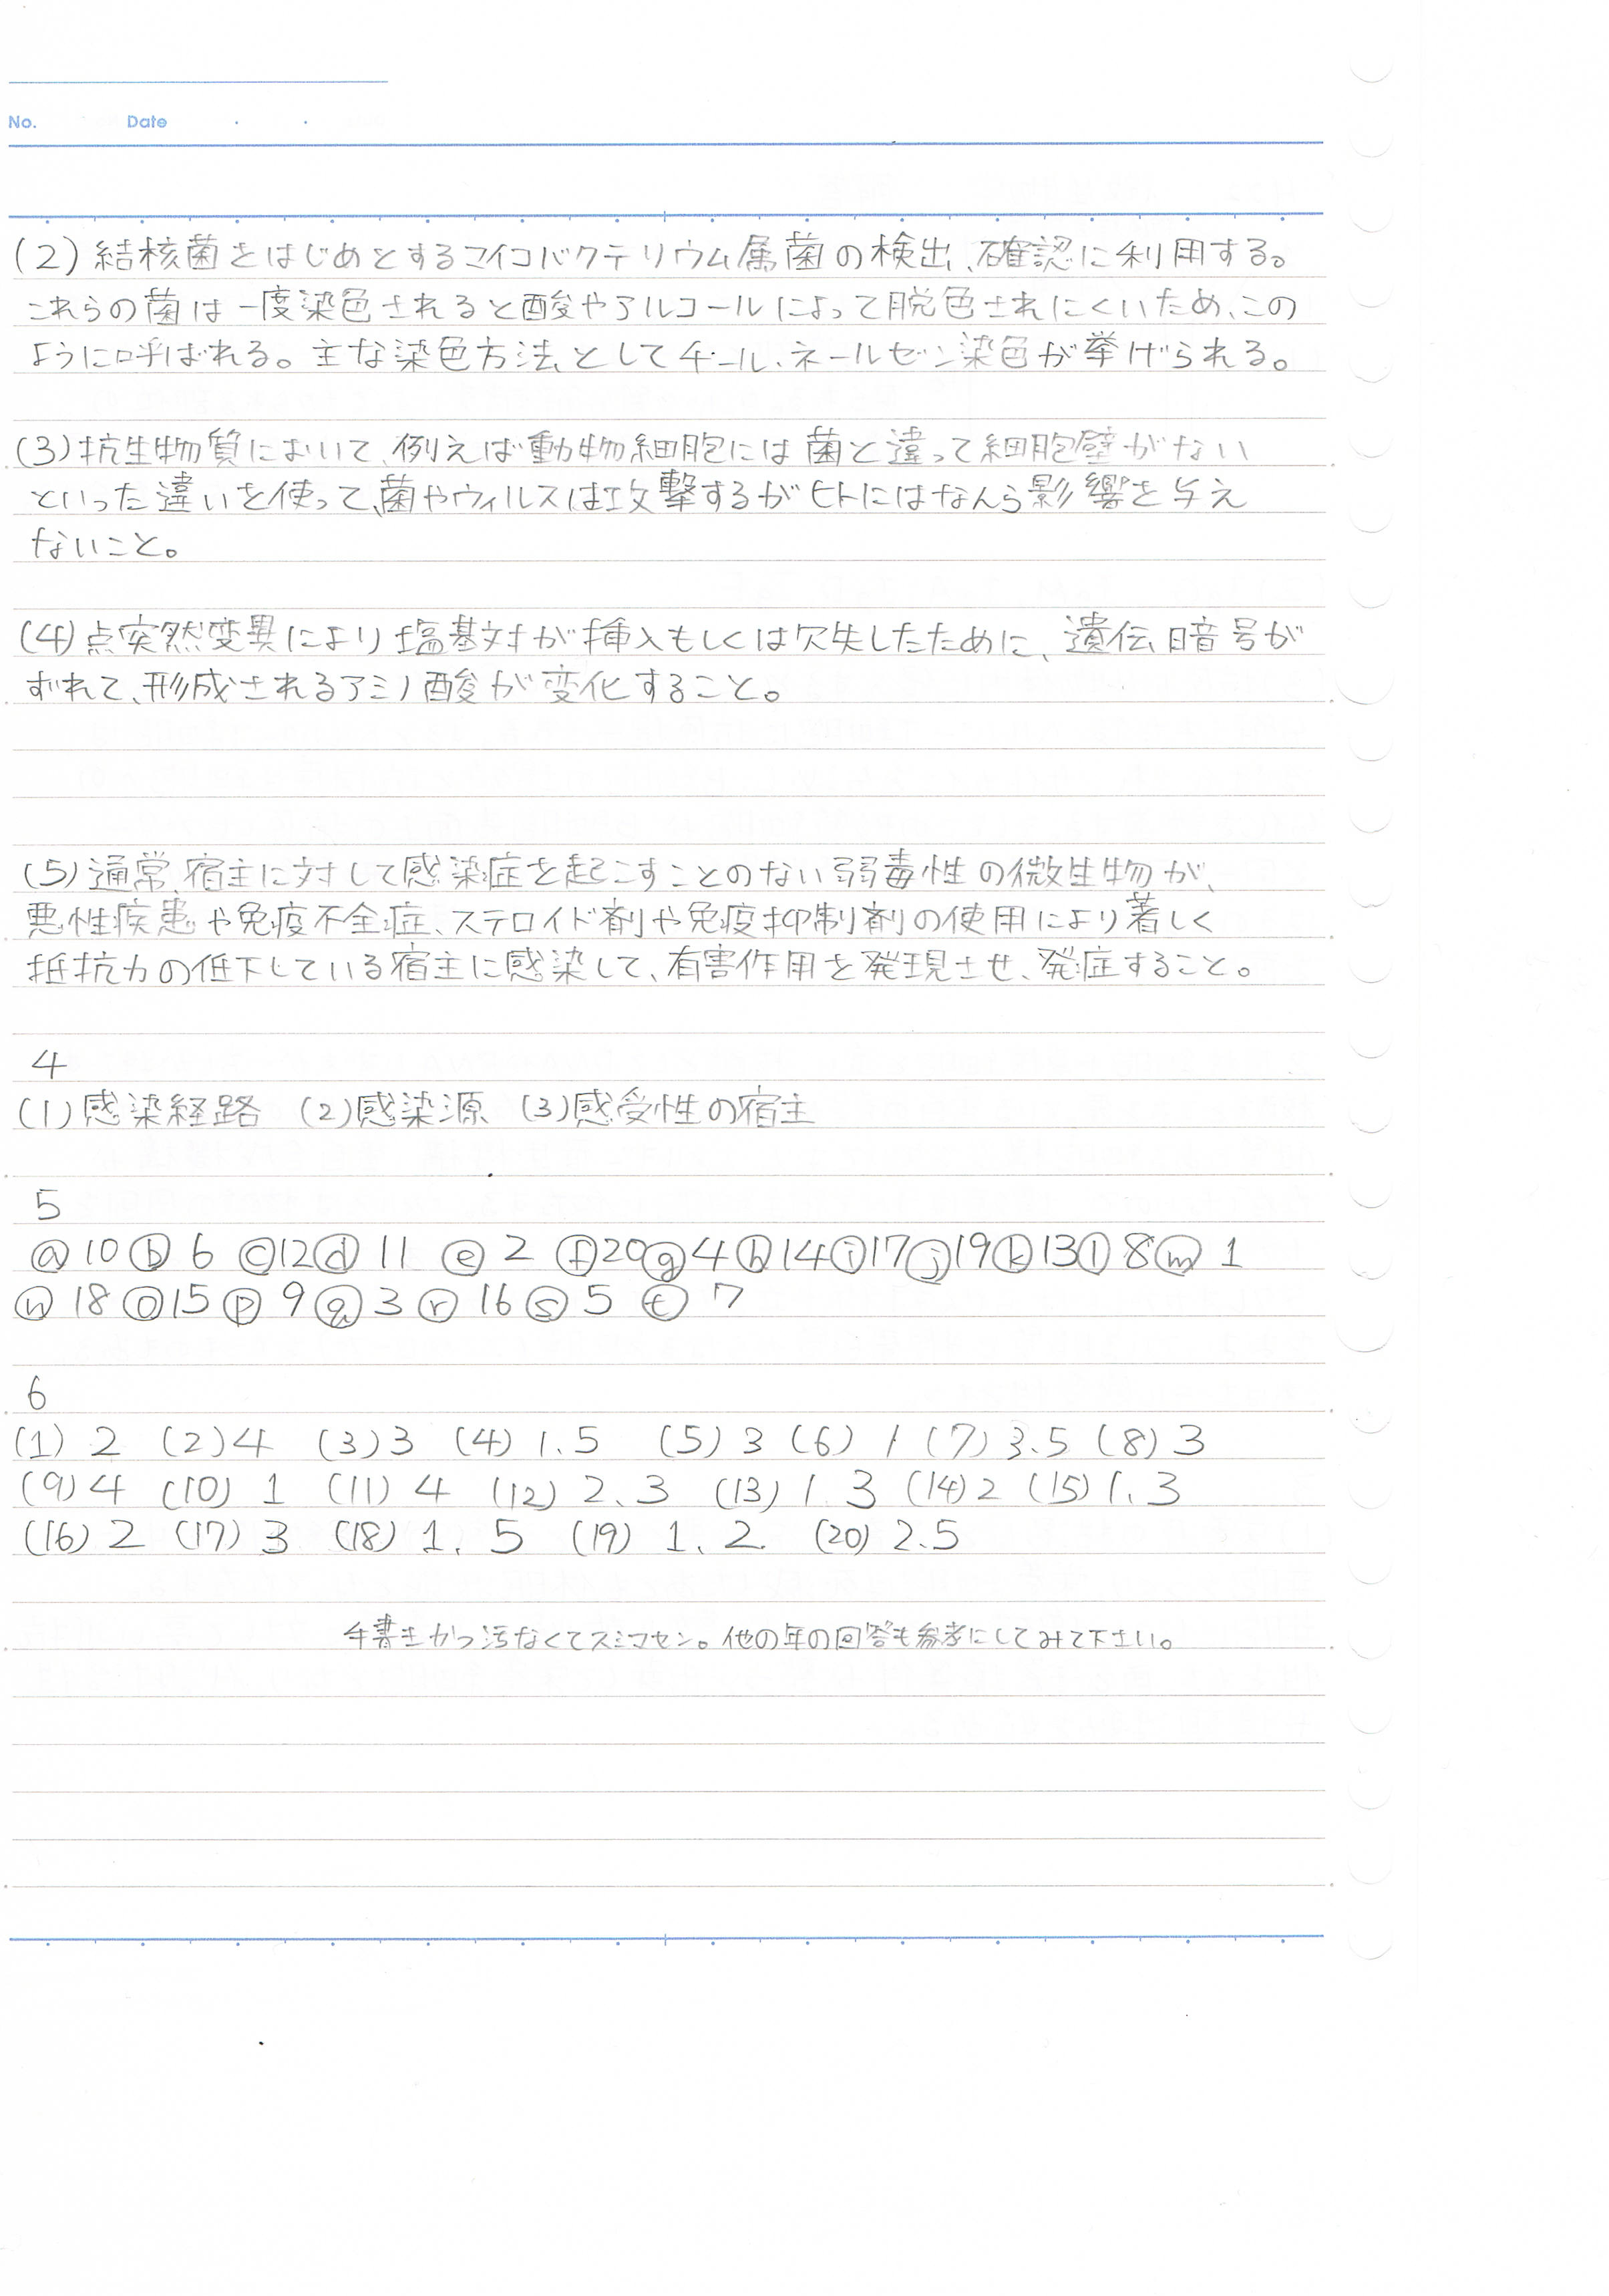 No. Date
(2)結核菌をはじめとするマイコバクテリウム属菌の検出、確認に利用する。
これらの菌は一度染色されると酸やアルコールによって脱色されにくいため、この
ように呼ばれる。主な染色方法としてチール、ネールゼン染色が挙げられる。
(3)抗生物質において、例えば動物細胞には菌と違って細胞壁がない
といった違いを使って、菌やウィルスは攻撃するがヒトにはなんら影響を与え
ないこと。
(4)点突然変異により塩基対が挿入もしくは欠失したために、遺伝暗号が
ずれて、形成されるアミノ酸が変化すること。
(5)通常、宿主に対して感染症を起こすことのない弱毒性の微生物が、
悪性疾患や免疫不全症、ステロイド剤や免疫抑制剤の使用により著しく
抵抗力の低下している宿主に感染して、有害作用を発現させ、発症すること。
4
(1)感染経路 (2)感染源 (3)感受性の宿主
5
ⓐ10 ⓑ6 ⓒ12 ⓓ11 ⓔ2 ⓕ20 ⓖ4 ⓗ14 ⓘ17 ⓙ19 ⓚ13 ⓛ8 ⓜ1
ⓝ18 ⓞ15 ⓟ9 ⓠ3 ⓡ16 ⓢ5 ⓣ7
6
(1)2 (2)4 (3)3 (4)1.5 (5)3 (6)1 (7)3.5 (8)3
(9)4 (10)1 (11)4 (12)2、3 (13)1 3 (14)2 (15)1、3
(16)2 (17)3 (18)1、5 (19)1、2 (20)2.5
手書きかつ汚なくてスミマセン。他の年の回答も参考にしてみて下さい。